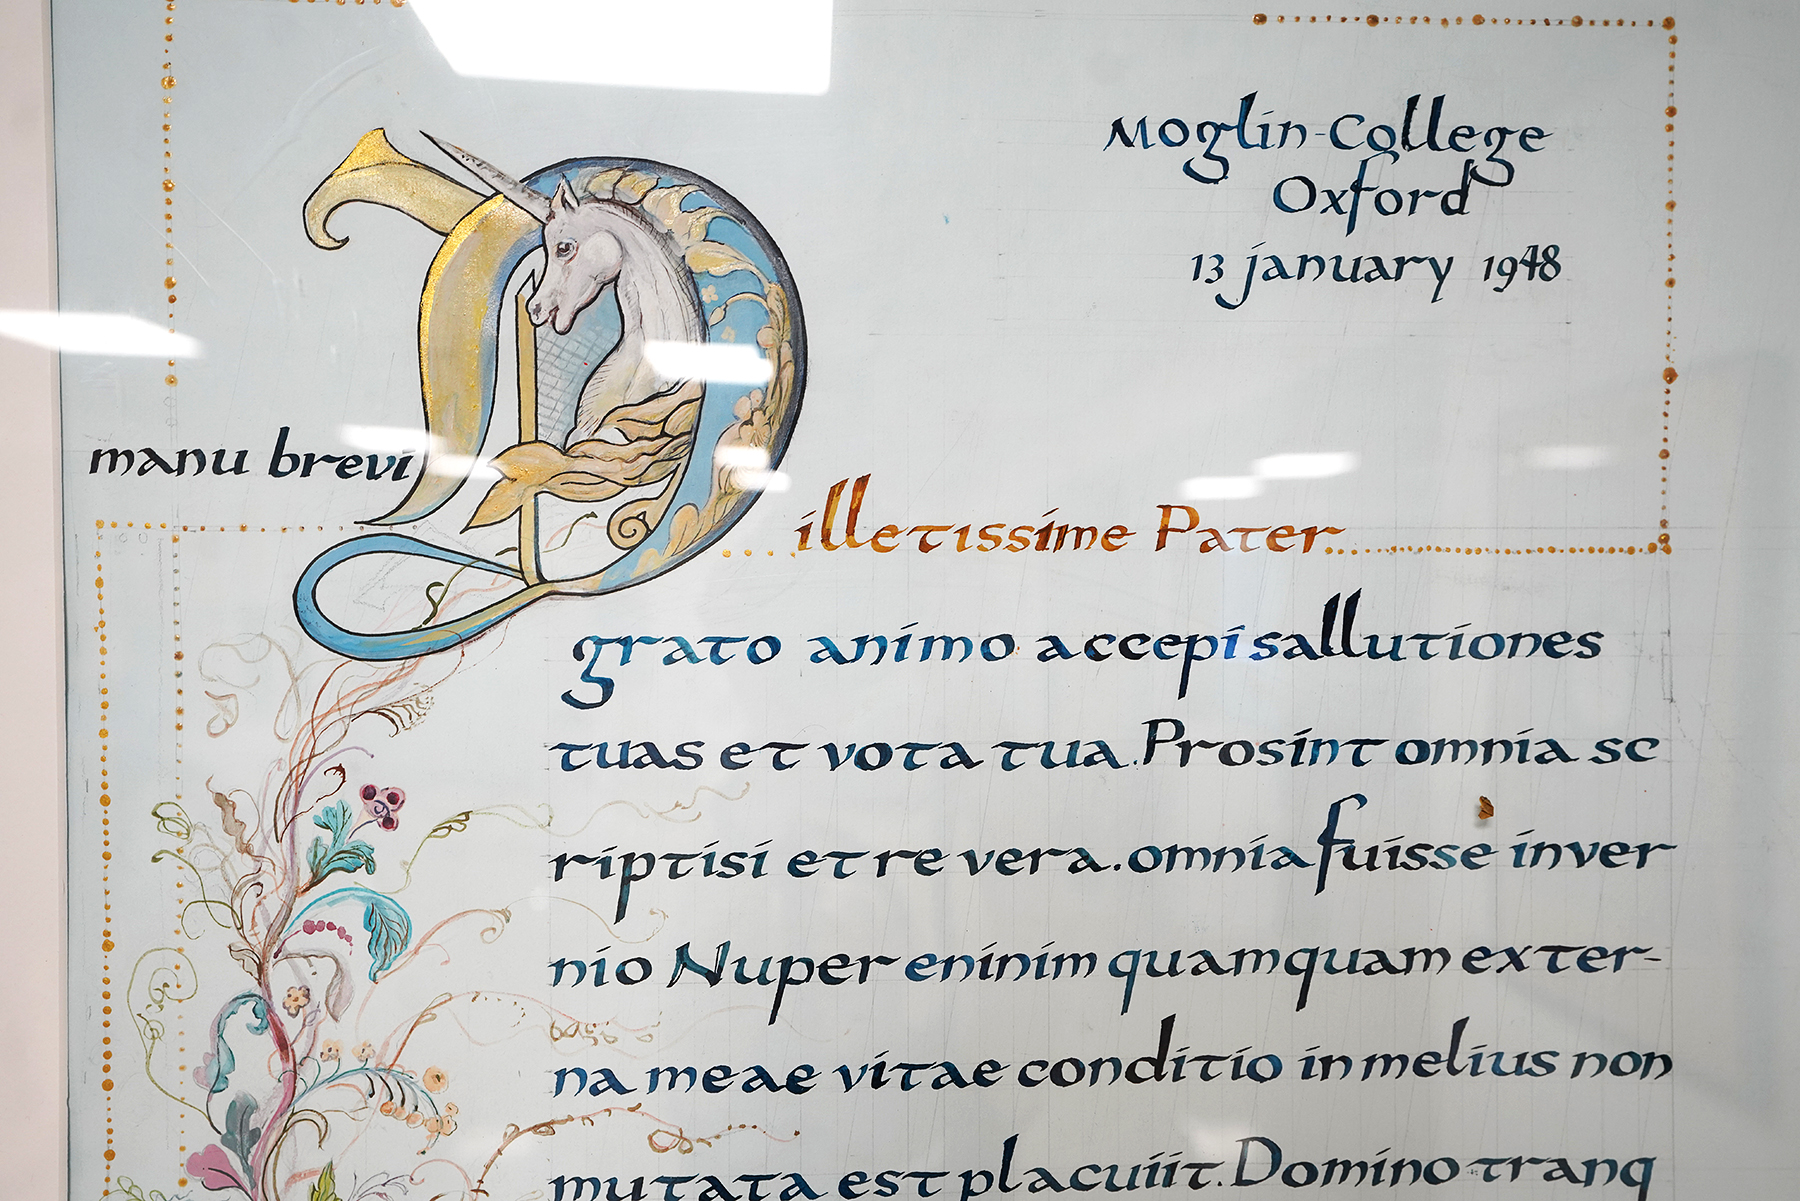 Moglin-College
Oxford
13 january 1948
manu brevi
Dilletissime Pater
grato animo accepi sallutiones
tuas et vota tua. Prosint omnia sc
riptisi et re vera. omnia fuisse inver
nio Nuper eninim quamquam exter-
na meae vitae conditio in melius non
mutata est placuiit. Domino tranq